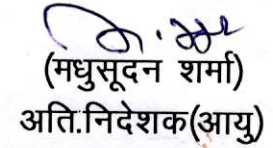 (मधुसूदन शर्मा)
अति.निदेशक(आयु)